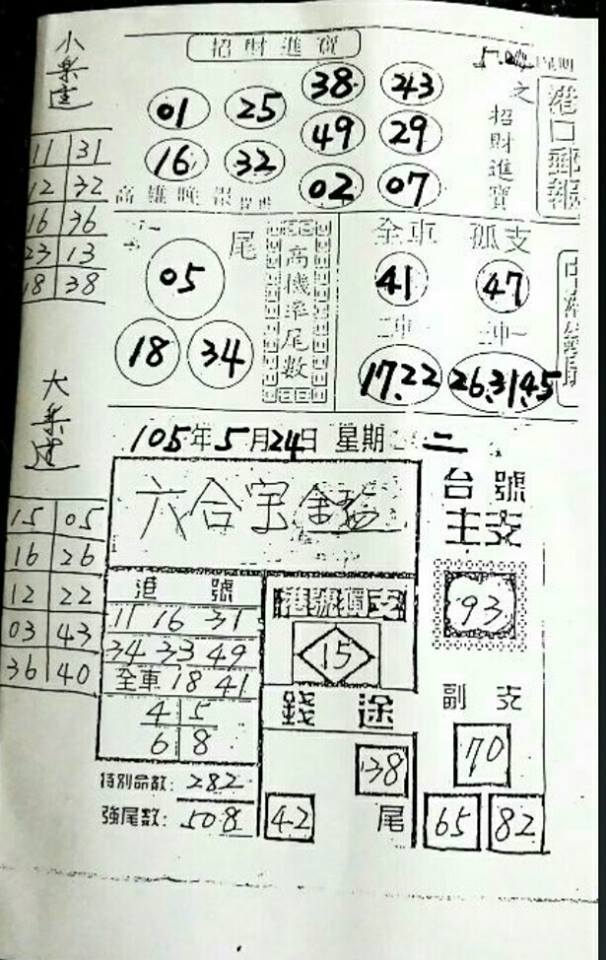 小樂透
11 31
12 32
16 36
23 13
18 38
大樂透
15 05
16 26
12 22
03 43
36 40
招財進寶
38 43
01 25
49 29
16 32
02 07
高雄晚報
之招財進寶
港口郵報
尾
05
18 34
高機率尾數
全車 孤支
41 47
二中一
17.22 26.31.45
105年5月24日 星期二
六合宝
港號
11 16 31
34 33 49
全車 18 41
4 5
6 8
特別命數: 282
強尾數: 508
港號獨支
15
錢途
38
42 尾
台號
主支
93
副支
70
65 82